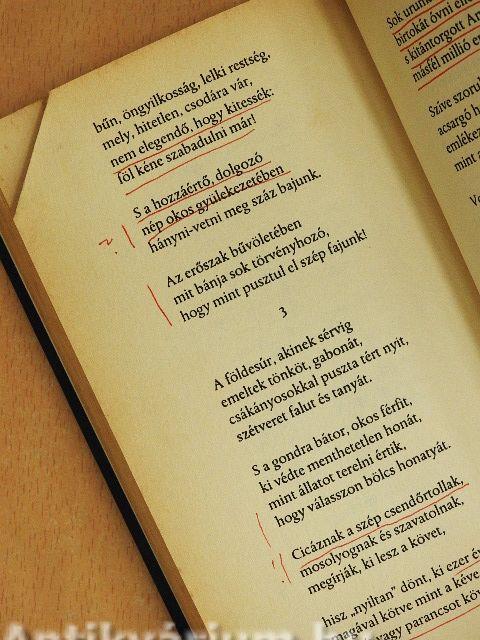 bűn, öngyilkosság, lelki restség,
mely, hitetlen, csodára vár,
nem elegendő, hogy kitessék:
föl kéne szabadulni már!
S a hozzáértő, dolgozó
nép okos gyülekezetében
hányni-vetni meg száz bajunk.
Az erőszak bűvöletében
mit bánja sok törvényhozó,
hogy mint pusztul el szép fajunk!
3
A földesúr, akinek sérvig
emeltek tönköt, gabonát,
csákányosokkal puszta tért nyit,
szétveret falut és tanyát.
S a gondra bátor, okos férfit,
ki védte menthetetlen honát,
mint állatot terelni értik,
hogy válasszon bölcs honatyát.
Cicáznak a szép csendőrtollak,
mosolyognak és szavatolnak,
megírják, ki lesz a követ,
hisz „nyiltan" dönt, ki ezer
magával kötve mint a kéve
vagy parancsot
Sok urunk
birtokát óvni
s kitántorgott
másfél millió
Szíve
acsargó
mint a
Antikvárium